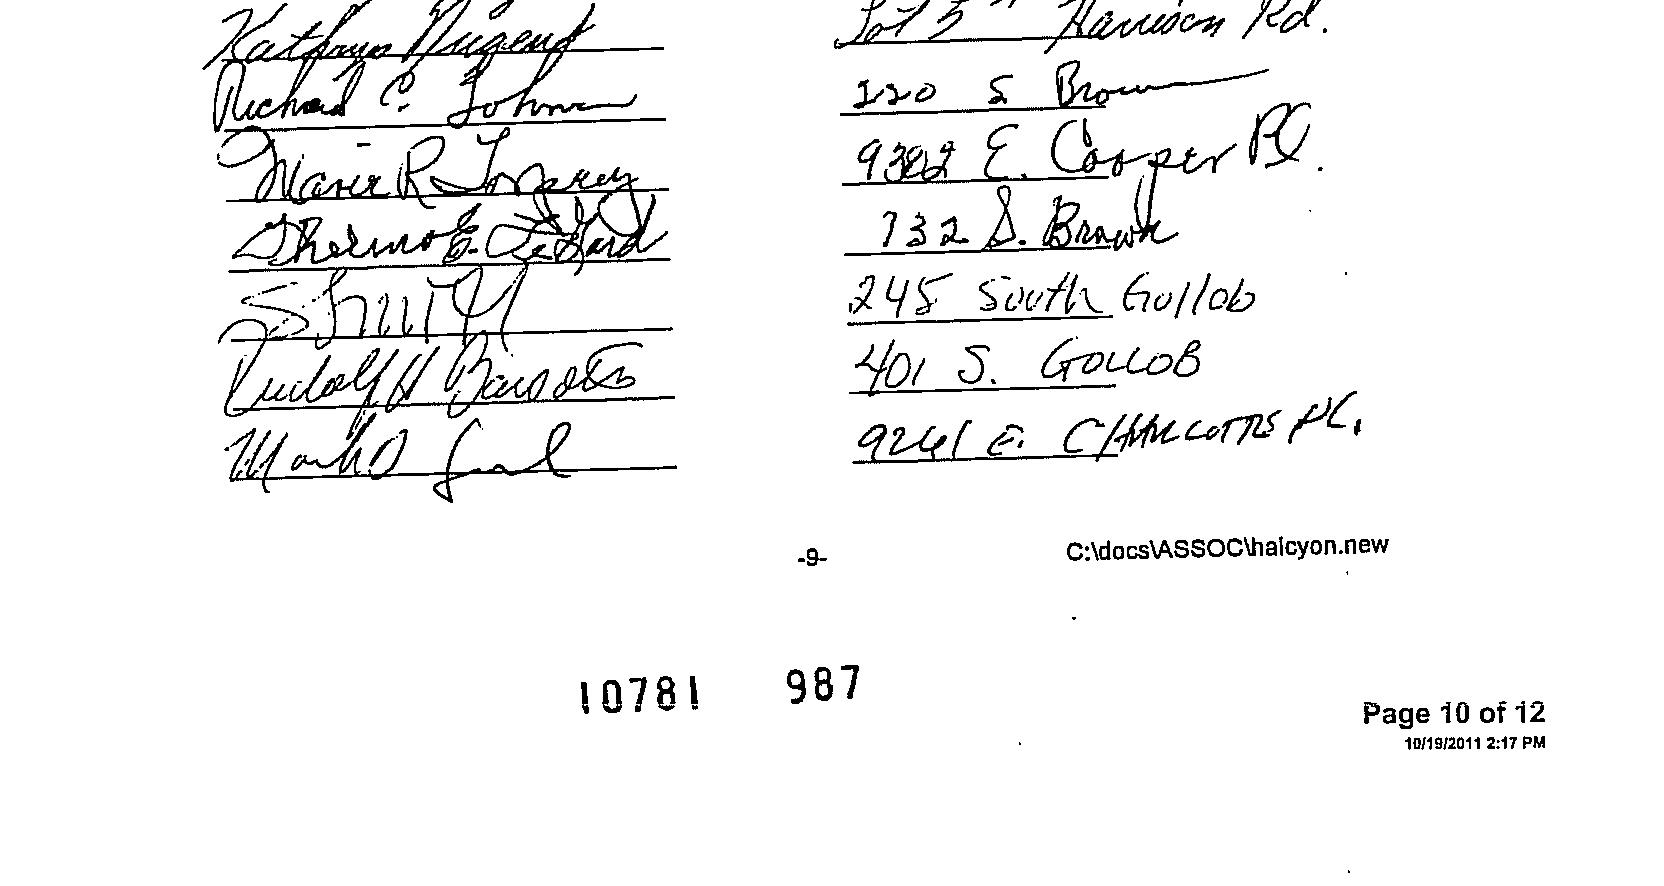 Kathryn Nugent Lot 5 Harrison Rd.
Richard C. Johnson 220 S Brown
Marie R 9382 E. Cooper Pl.
Thelma E. LeGard 732 S. Brown
245 South Gollob
Rudolf H 401 S. GOLLOB
Mark D 9261 E. PL.
-9- C:\docs\ASSOC\halcyon.new
10781 987
Page 10 of 12
10/19/2011 2:17 PM